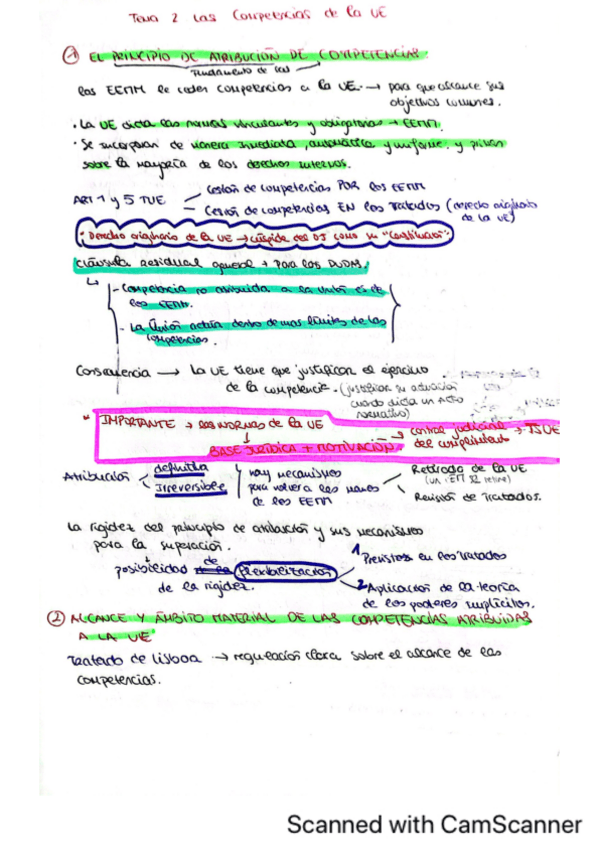 Tema 2 Las Competencias de la UE
1 EL PRINCIPIO DE ATRIBUCIÓN DE COMPETENCIAS.
Fundamento de las
Los EEMM le ceden competencias a la UE. → para que alcance sus
objetivos comunes.
· La UE dicta las normas vinculantes y obligatorias → EEMM.
· Se incorporan de manera inmediata, automática y uniforme, y priman
sobre la mayoría de los derechos internos.
ART 1 y 5 TUE
Cesión de competencias POR los EEMM
Cesión de competencias EN los Tratados (derecho originario
de la UE)
· Derecho originario de la UE → cúspide del DJ como su "Constitución".
Cláusula residual general → Para los DUDM.
- Competencia no atribuida a la Unión es de
los EEMM.
- La Unión actúa dentro de los límites de las
competencias.
Consecuencia → La UE tiene que justificar el ejercicio
de la competencia. (justificar su actuación
cuando dicta un Acto
normativo)
* IMPORTANTE → las NORMAS de la UE
↓
BASE JURÍDICA + MOTIVACIÓN → control judicial → TJUE
del cumplimiento
Atribución
definida
Irreversible
hay mecanismos
para volver a las manos
de los EEMM
Retirada de la UE
(un EM se retire)
Revisión de Tratados.
La rigidez del principio de atribución y sus mecanismos
para la superación.
posibilidad de flexibilización
de la rigidez.
1 Previstos en los tratados
2 Aplicación de la teoría
de los poderes implícitos.
2 ALCANCE Y ÁMBITO MATERIAL DE LAS COMPETENCIAS ATRIBUIDAS
A LA UE
Tratado de Lisboa → regulación clara sobre el alcance de las
competencias.
Scanned with CamScanner